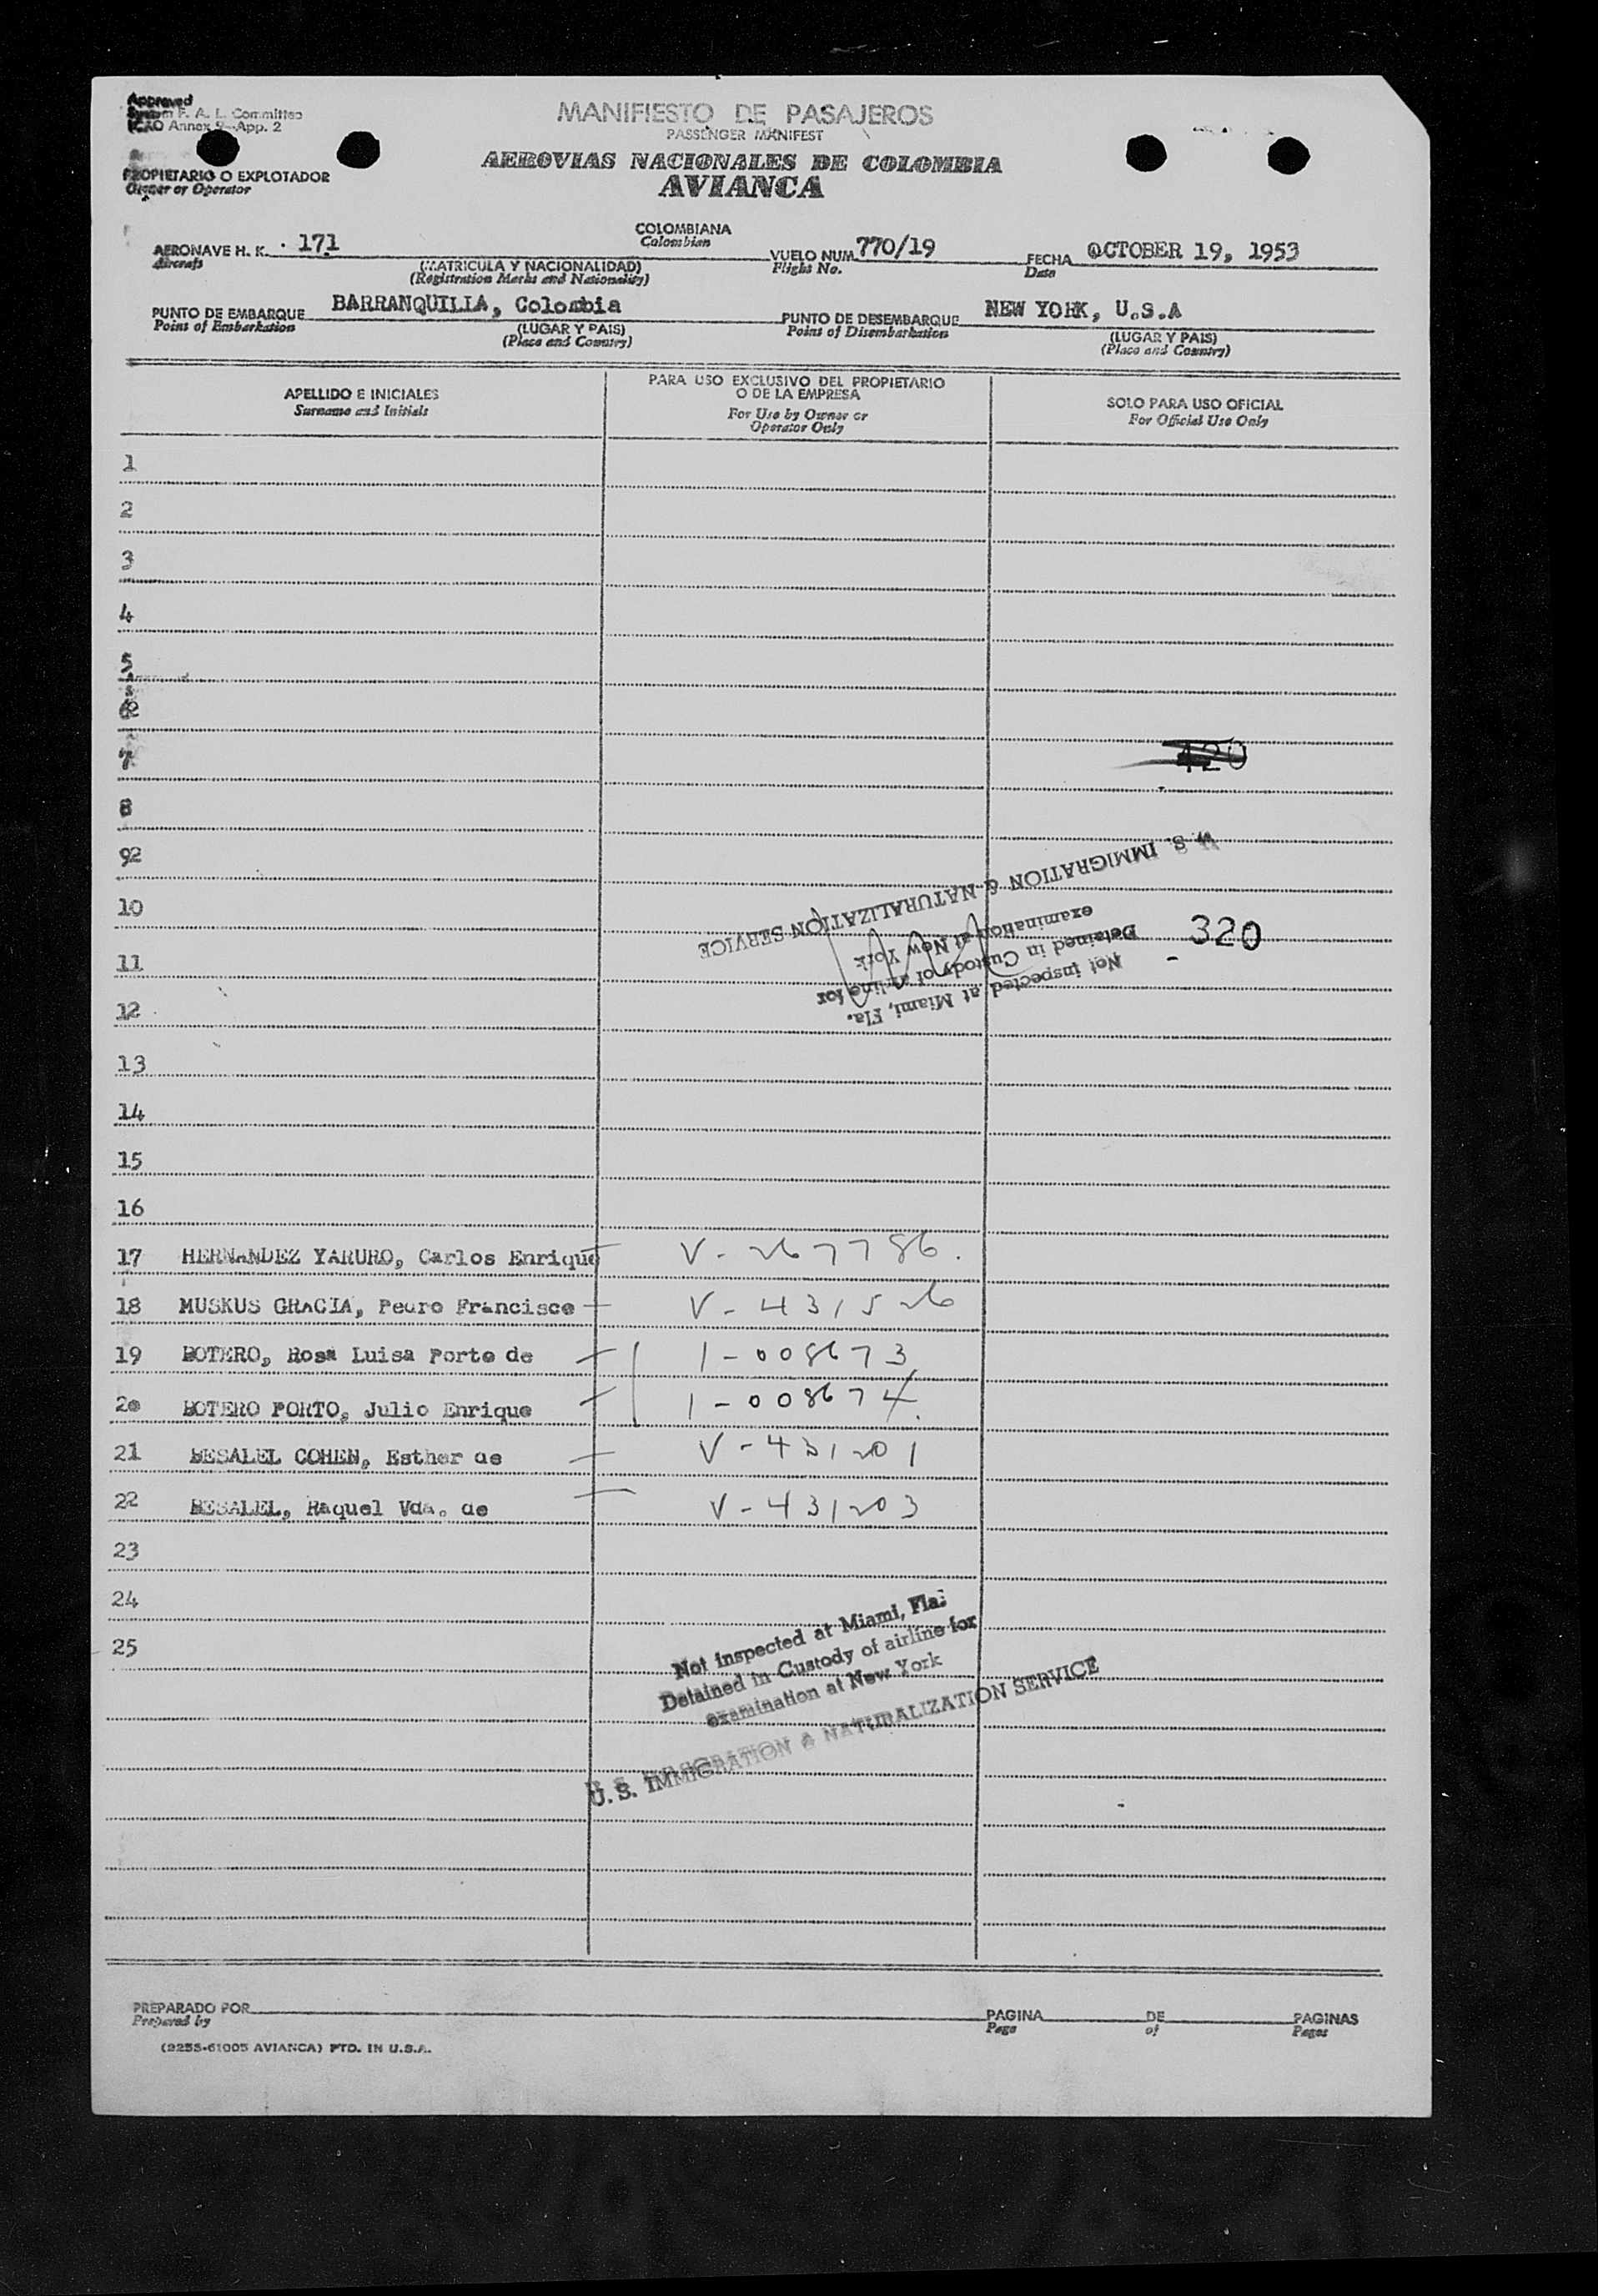 Approved
System F. A. L. Committee
ICAO Annex 9—App. 2
MANIFIESTO DE PASAJEROS
PASSENGER MANIFEST
AEROVIAS NACIONALES DE COLOMBIA
AVIANCA
PROPIETARIO O EXPLOTADOR
Owner or Operator
AERONAVE H. K. 171
Aircraft
COLOMBIANA
Colombian
(MATRICULA Y NACIONALIDAD)
(Registration Marks and Nationality)
VUELO NUM 770/19
Flight No.
FECHA OCTOBER 19, 1953
Date
PUNTO DE EMBARQUE BARRANQUILLA, Colombia
Point of Embarkation
(LUGAR Y PAIS)
(Place and Country)
PUNTO DE DESEMBARQUE NEW YORK, U.S.A
Point of Disembarkation
(LUGAR Y PAIS)
(Place and Country)
APELLIDO E INICIALES
Surname and Initials
PARA USO EXCLUSIVO DEL PROPIETARIO
O DE LA EMPRESA
For Use by Owner or
Operator Only
SOLO PARA USO OFICIAL
For Official Use Only
1
2
3
4
5
6
7
420
8
9
10
11
12
Not inspected at Miami, Fla.
Detained in Custody of airline for
examination at New York
U. S. IMMIGRATION & NATURALIZATION SERVICE
320
13
14
15
16
17 HERNANDEZ YARURO, Carlos Enrique V-267786.
18 MUSKUS GRACIA, Pedro Francisco V-431526
19 BOTERO, Rosa Luisa Porto de 1-008673
20 BOTERO PORTO, Julio Enrique 1-008674
21 BESALEL COHEN, Esther de V-431201
22 BESALEL, Raquel Vda. de V-431203
23
24
25
Not inspected at Miami, Fla.
Detained in Custody of airline for
examination at New York
U. S. IMMIGRATION & NATURALIZATION SERVICE
PREPARADO POR
Prepared by
PAGINA DE PAGINAS
Page of Pages
(2255-61005 AVIANCA) PTD. IN U.S.A.